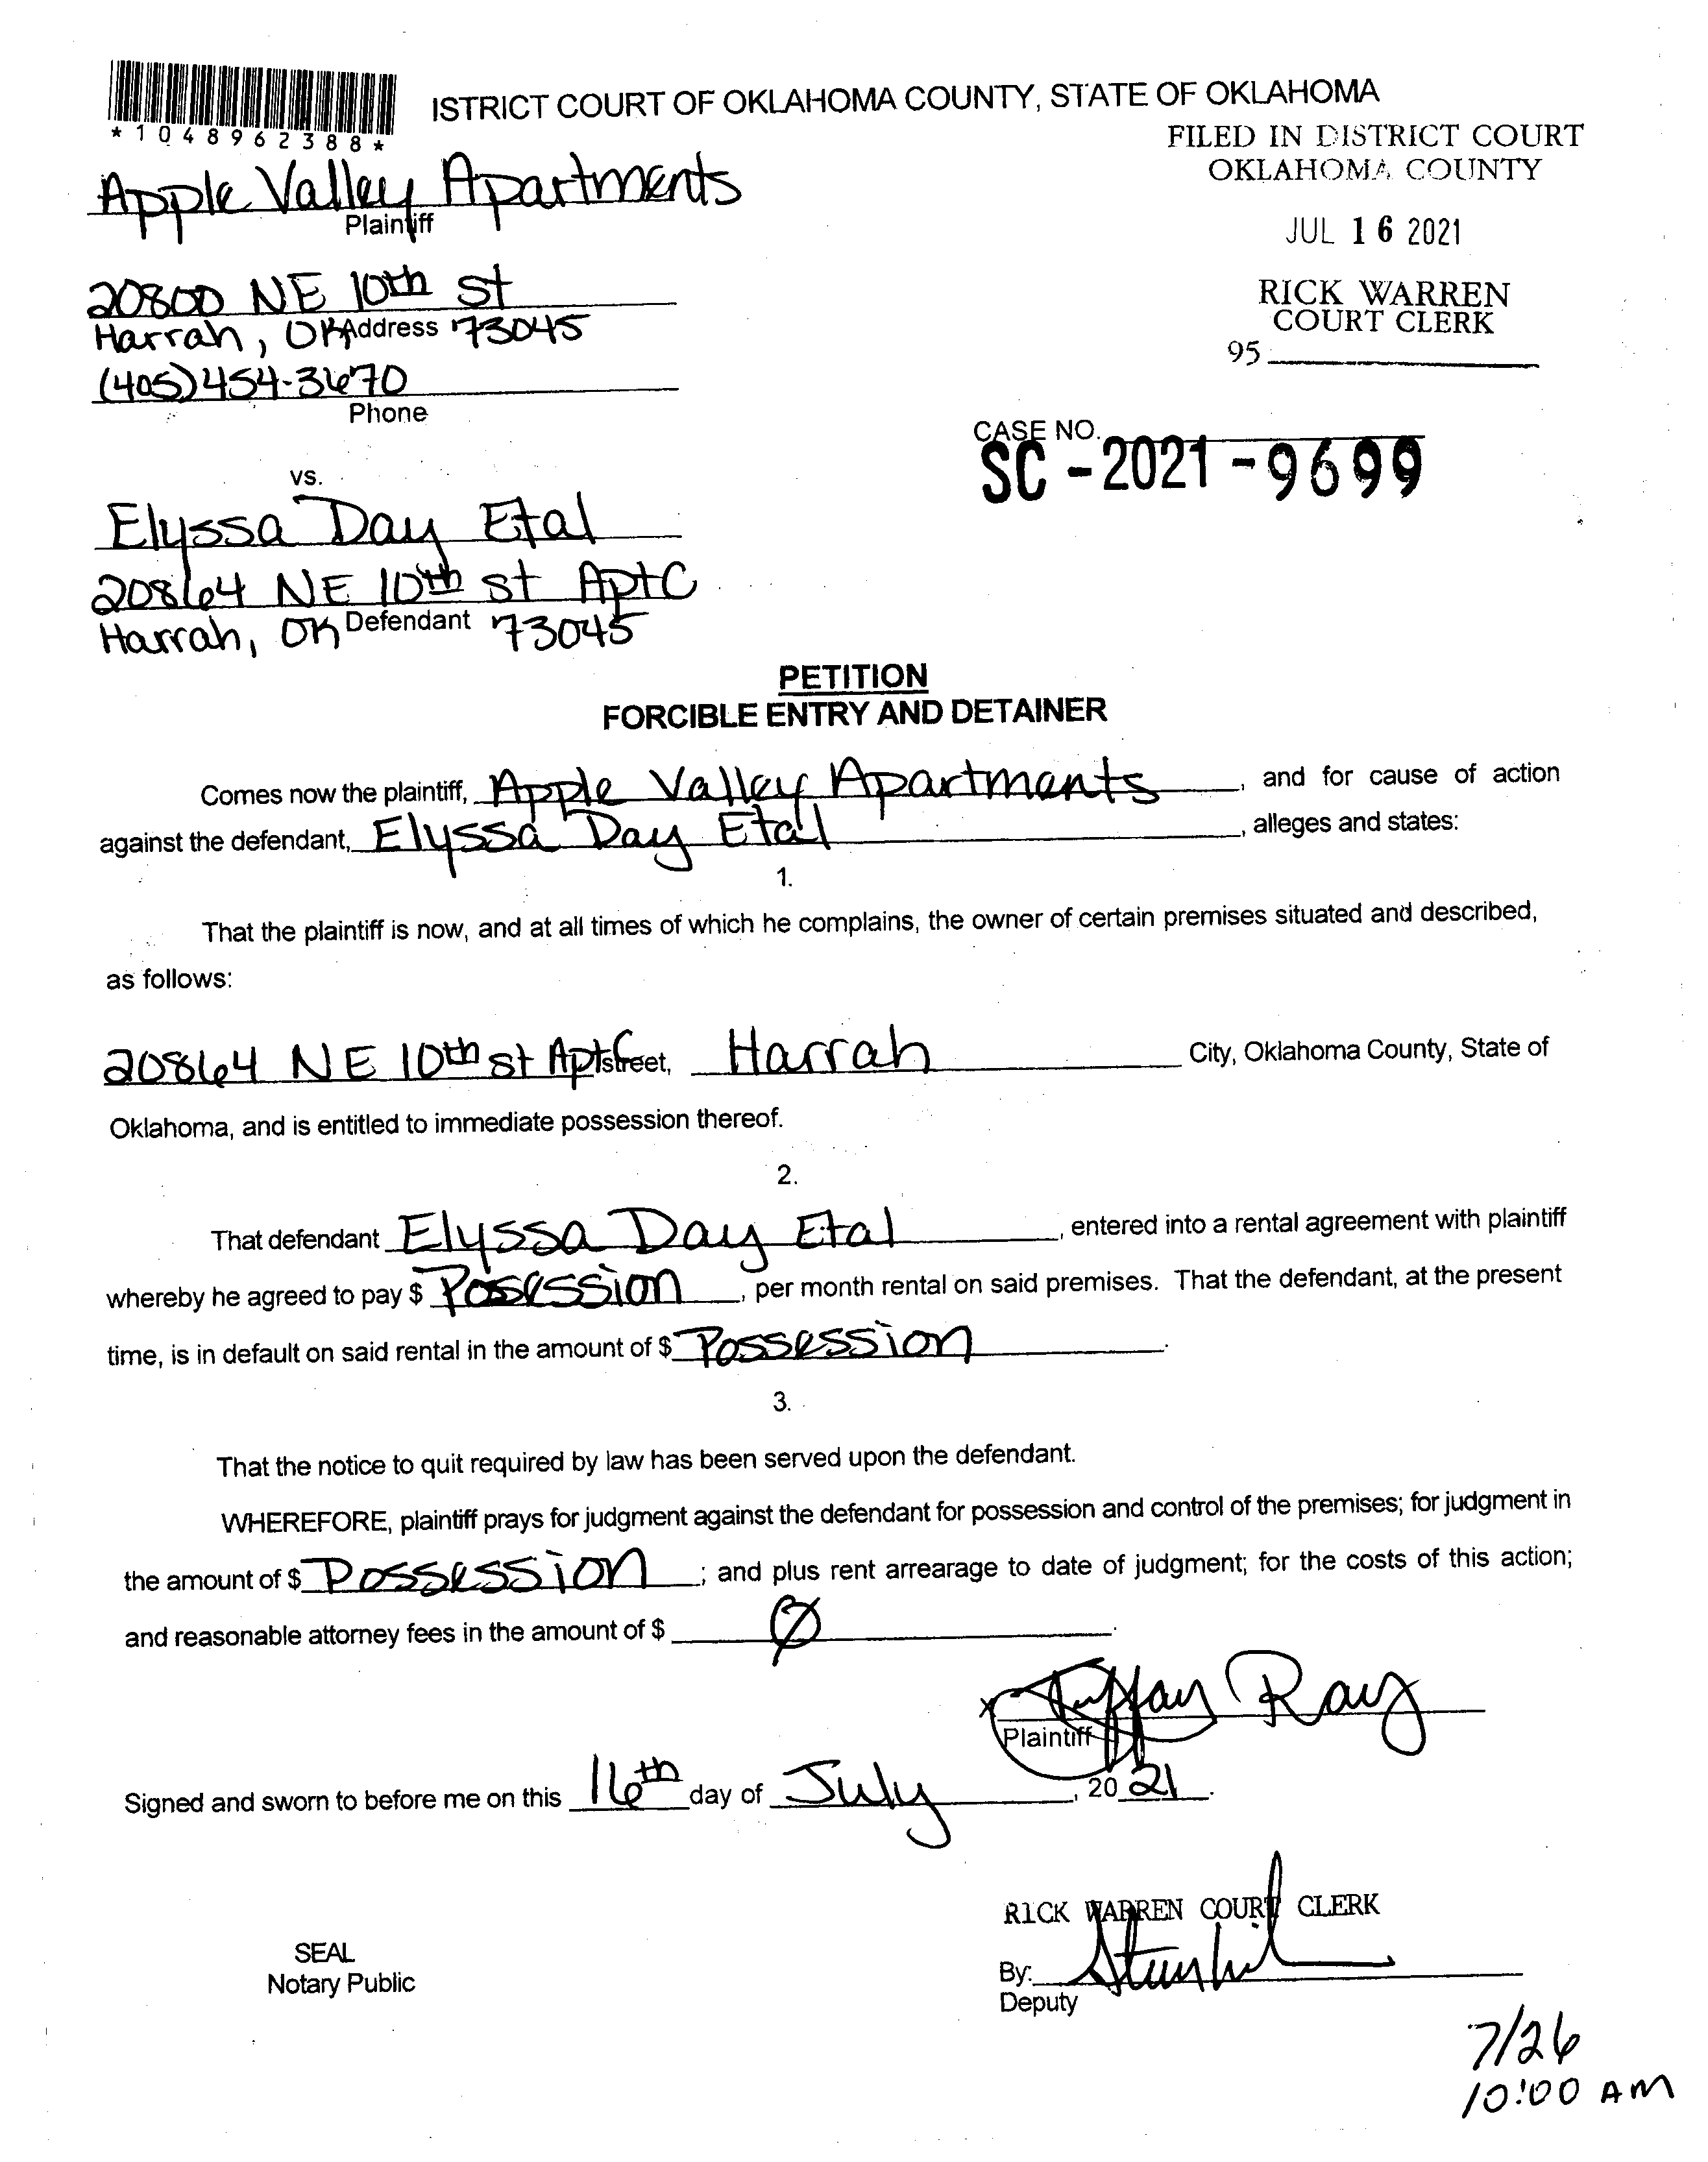 ISTRICT COURT OF OKLAHOMA COUNTY, STATE OF OKLAHOMA
*1048962388*
FILED IN DISTRICT COURT
OKLAHOMA COUNTY
JUL 16 2021
RICK WARREN
COURT CLERK
95
Apple Valley Apartments
Plaintiff
20800 NE 10th st
Harrah, OK Address 73045
(405)454-3670
Phone
CASE NO.
SC-2021-9699
vs.
Elyssa Day Etal
20864 NE 10th st Apt C
Harrah, OK Defendant 73045
PETITION
FORCIBLE ENTRY AND DETAINER
Comes now the plaintiff, Apple Valley Apartments, and for cause of action
against the defendant, Elyssa Day Etal, alleges and states:
1.
That the plaintiff is now, and at all times of which he complains, the owner of certain premises situated and described,
as follows:
20864 NE 10th st Apt C street, Harrah City, Oklahoma County, State of
Oklahoma, and is entitled to immediate possession thereof.
2.
That defendant Elyssa Day Etal, entered into a rental agreement with plaintiff
whereby he agreed to pay $ Possession, per month rental on said premises. That the defendant, at the present
time, is in default on said rental in the amount of $ Possession.
3.
That the notice to quit required by law has been served upon the defendant.
WHEREFORE, plaintiff prays for judgment against the defendant for possession and control of the premises; for judgment in
the amount of $ Possession; and plus rent arrearage to date of judgment; for the costs of this action;
and reasonable attorney fees in the amount of $ Ø.
x Tiffany Ray
Plaintiff
Signed and sworn to before me on this 16th day of July, 20 21.
RICK WARREN COURT CLERK
SEAL
Notary Public
By:
Deputy
7/26
10:00 AM